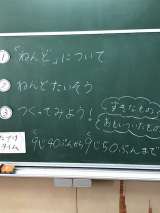 ① 「ねんど」について
② ねんどたいそう
③ つくってみよう!
すきなもの
おもいついたもの
タイム
9じ40ぷんから9じ50ぷんまで